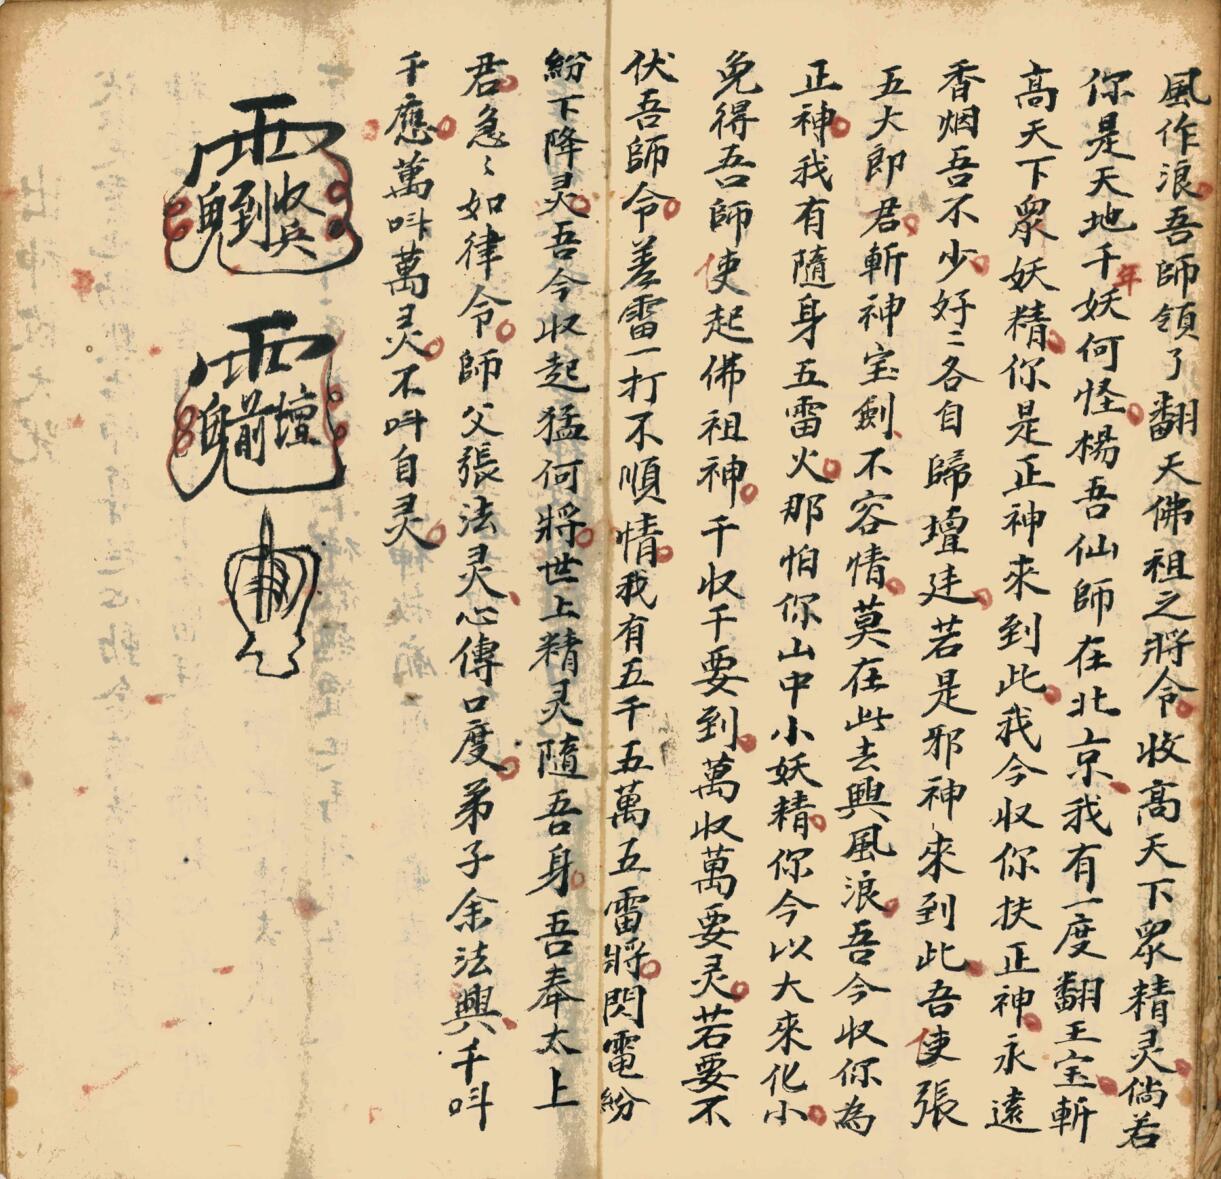 風作浪吾師領了翻天佛祖之將令收高天下眾精灵倘若
你是天地千年妖何怪楊吾仙師在北京我有一度翻王宝斬
高天下眾妖精你是正神來到此我今收你扶正神永遠
香烟吾不少好〻各自歸壇廷若是邪神來到此吾使張
五大郎君斬神宝劍不容情莫在此去興風浪吾今收你為
正神我有隨身五雷火那怕你山中小妖精你今以大來化小
免得吾師使起佛祖神千收千要到萬收萬要灵若要不
伏吾師令差雷一打不順情我有五千五萬五雷將閃電紛
紛下降灵吾今收起猛何將世上精灵隨吾身吾奉太上
君急〻如律令師父張法灵心傳口度弟子余法興千呌
千應萬呌萬灵不呌自灵
收兵到
壇前